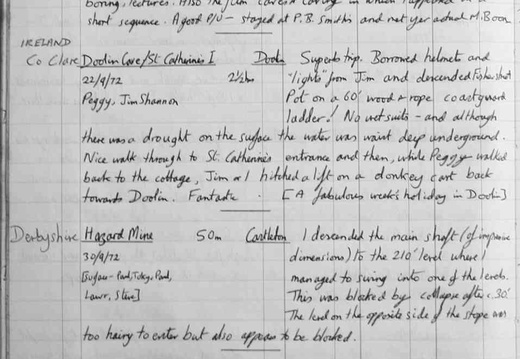 short sequence. A good P/U – stayed at P.B. Smith's and not yet actual M. Boon
IRELAND
Co Clare Doolin Cave/St. Catherines I Doolin Superb trip. Borrowed helmets and
22/9/72 2½hrs "lights" from Jim and descended Fisherstreet
Peggy, Jim Shannon Pot on a 60' wood & rope coastguard
ladder! No wet suits – and although
there was a drought on the surface the water was waist deep underground.
Nice walk through to St. Catherines entrance and then, while Peggy walked
back to the cottage, Jim & I hitched a lift on a donkey cart back
towards Doolin. Fantastic. [A fabulous week's holiday in Doolin]
Derbyshire Hazard Mine 50m Castleton I descended the main shaft (of impressive
30/9/72 dimensions) to the 210' level where I
[Surface – Paul, Toby, Paul, managed to swing into one of the levels.
Lawr, Steve] This was blocked by collapse after c.30'
The level on the opposite side of the stope was
too hairy to enter but also appears to be blocked.